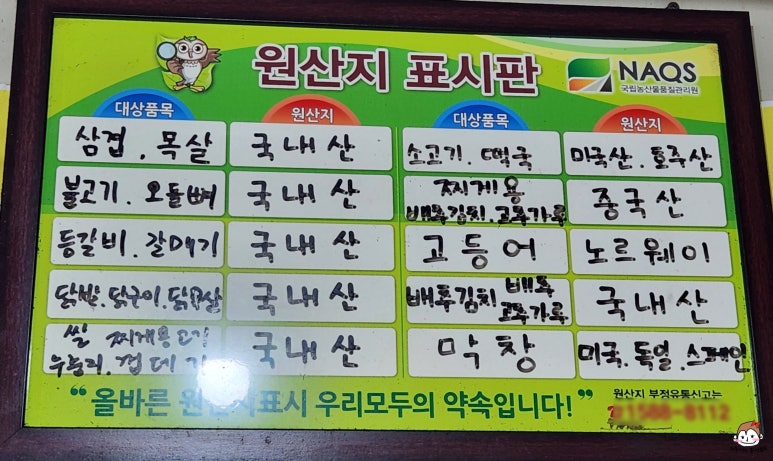 원산지 표시판
NAQS
국립농산물품질관리원
대상품목 원산지 대상품목 원산지
삼겹. 목살 국내산 소고기. 떡국 미국산. 호주산
불고기. 오돌뼈 국내산 찌게용 배추김치. 고추가루 중국산
등갈비. 갈매기 국내산 고등어 노르웨이
닭발. 닭구이. 국내산 배추김치 배추 고추가루 국내산
쌀 찌게용고기 껍데기 국내산 막창 미국. 독일. 스페인
“올바른 원산지표시 우리모두의 약속입니다!”
원산지 부정유통신고는
☎1588-8112